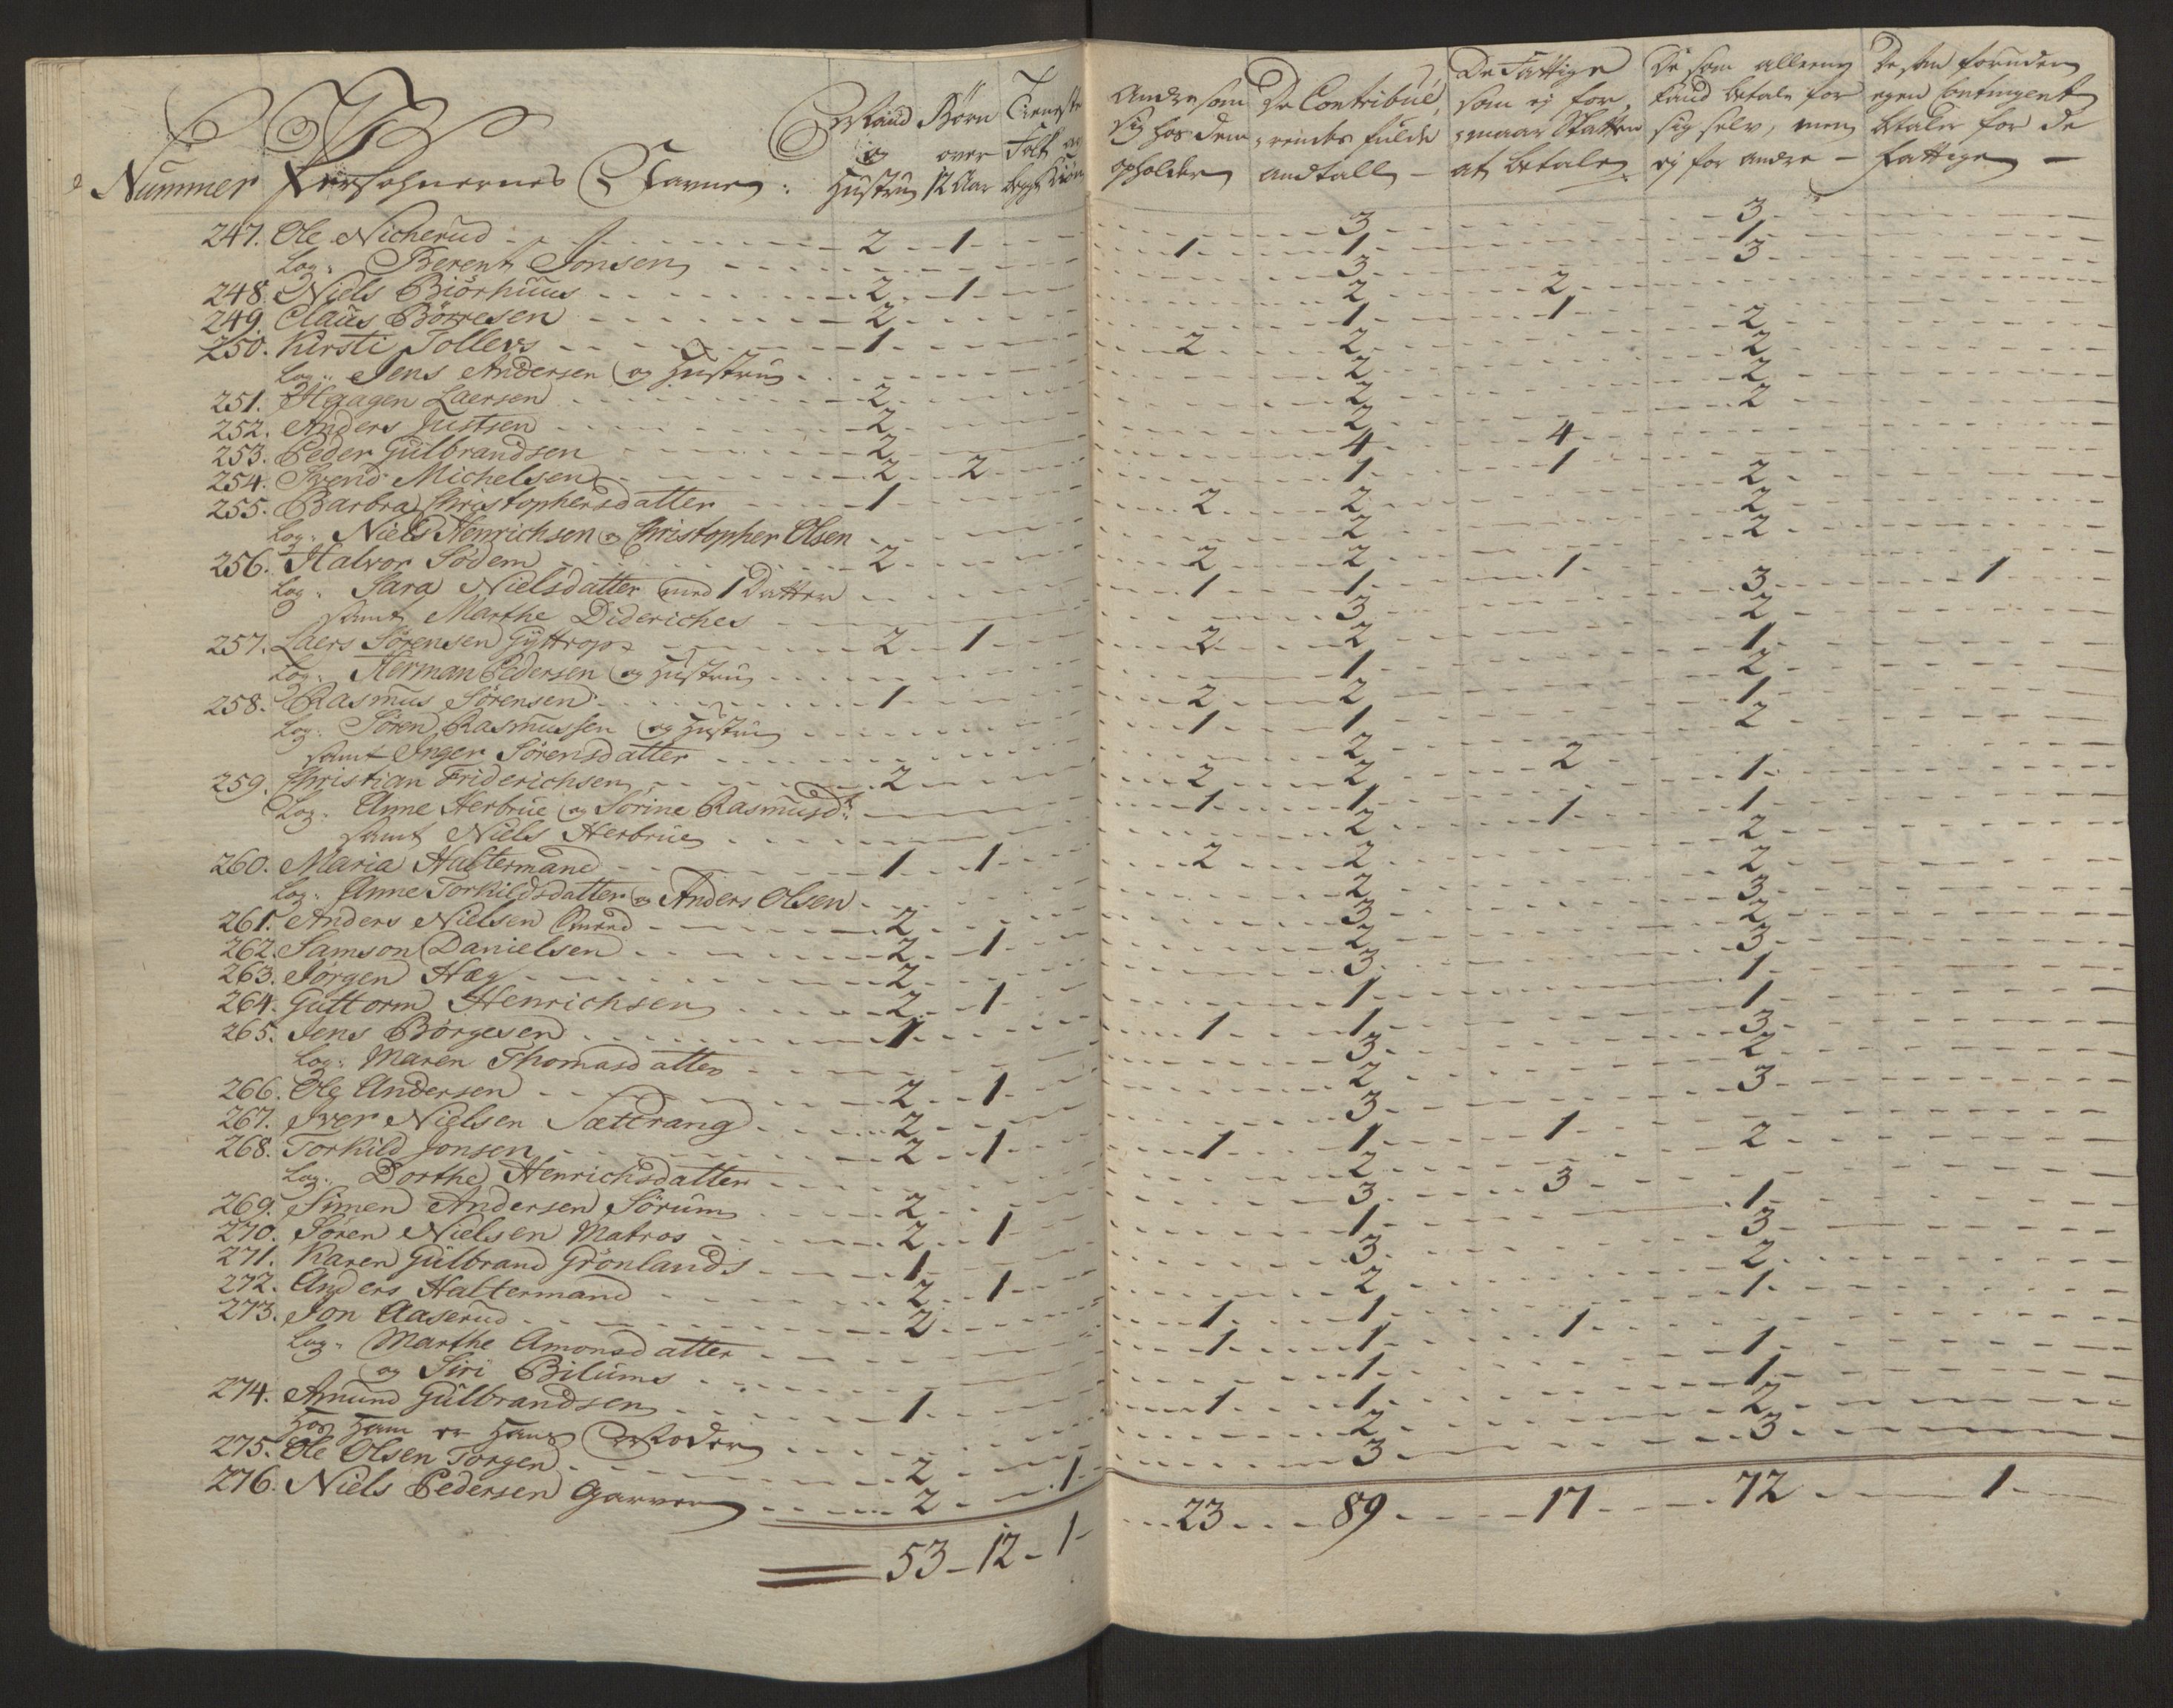 Nummer Persohnernes Navne: Mand og Hustru Børn over 12 Aar Tieneste Folk
Andre som sig hos dem opholder De Contribuerendes fulde andtall De Fattige som ej formaar Skatten at betale De som alleene kand betale for sig selv, men ej for andre De som foruden egen Contingent betaler for de fattige
247. Ole Nicherud 2 1 3 3
Log: Berent Jonsen 1 1 1
248. Niels Biörhuus 2 1 3 3
249. Claus Börresen 2 2 2
250. Kirsti Tollevs 1 1 1
Log: Jens Andersen og Hustru 2 2 2
251. Haagen Laersen 2 2 2
252. Anders Justsen 2 2 2
253. Peder Gulbrandsen 2 2 2
254. Svend Michelsen 2 2 4 4
255. Barbra Christophersdatter 1 1 1
Log: Niels Henrichsen og Christopher Olsen 2 2 2
256. Halvor Sodem 2 2 2
Log: Sara Nielsdatter med 1 Datter 2 2 2
samt Marthe Dideriches 1 1 1
257. Laers Sörensen Gyttrop 2 1 3 3 1
Log: Herman Pedersen og Hustru 2 2 2
258. Rasmus Sörensen 1 1 1
Log: Sören Rasmussen og Hustru 2 2 2
samt Inger Sörensdatter 1 1 1
259. Christian Friderichsen 2 2 2
Log: Anne Herbrue og Sorine Rasmusdr 2 2 2
samt Niels Herbrue 1 1 1
260. Maria Haltermand 1 1 2 1 1
Log: Anne Torkildsdatter og Anders Olsen 2 2 2
261. Anders Nielsen 2 2 2
262. Samson Danielsen 2 1 3 3
263. Jörgen Hæg 2 2 2
264. Guttorm Henrichsen 2 1 3 3
265. Jens Börgesen 1 1 1
Log: Maren Thomasdatter 1 1 1
266. Ole Andersen 2 1 3 3
267. Iver Nielsen Sættrang 2 2 2
268. Torkild Jonsen 2 1 3 3
Log: Dorthe Henrichsdatter 1 1 1
269. Simen Andersen Sörum 2 2 2
270. Sören Nielsen Matros 2 1 3 3
271. Karen Gulbrand Grönlands 1 1 1
272. Anders Haltermand 2 1 3 3
273. Jon Aaserud 2 2 2
Log: Marthe Amonsdatter 1 1 1
og Siri Bilums 1 1 1
274. Amund Gulbrandsen 1 1 1
Hos Ham er Hans Moder 1 1 1
275. Ole Olsen Torgen 2 2 2
276. Niels Pedersen Garver 2 1 3 3
53 12 1 23 89 17 72 1